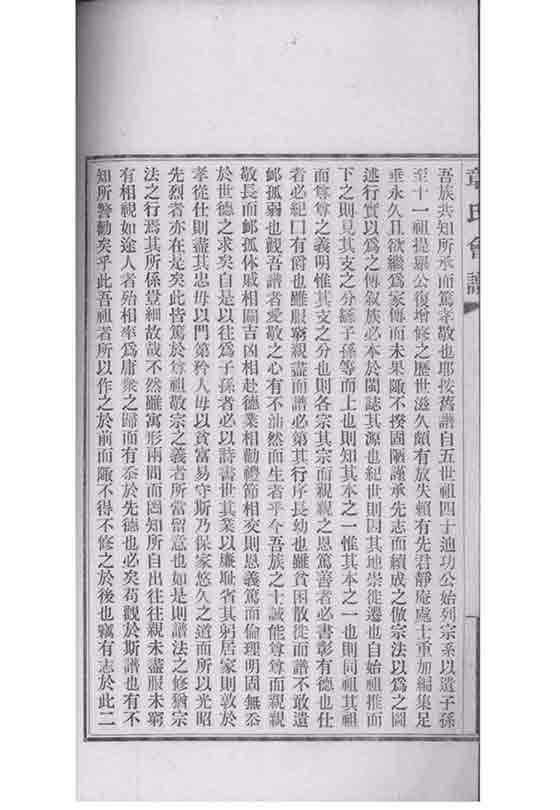 章氏會譜
吾族共知所承而篤孝敬也耶按舊譜自五世祖四十迪功公始列宗系以遺子孫
至十一祖提舉公復增修之歷世滋久頗有放失賴有先君靜庵處士重加編集足
垂永久且欲繼爲家傳而未果陬不揆固陋謹承先志而續成之倣宗法以爲之圖
述行實以爲之傳叙族必本於閥誌其源也紀世則因其地崇徙遷也自始祖推而
下之則見其支之分繇子孫等而上也則知其本之一惟其本之一也則同祖其祖
而尊尊之義明惟其支之分也則各宗其宗而親親之恩篤善者必書彰有德也仕
者必紀曰有爵也雖服窮親盡而譜必第其行序長幼也雖貧困散徙而譜不敢遺
卹孤弱也觀吾譜者愛敬之心有不油然而生者乎今吾族之士誠能尊尊而親親
敬長而卹孤休戚相關吉凶相赴德業相勸禮節相交則恩義篤而倫理明固無忝
於世德之求矣自是以往爲子孫者必以詩書世其業以廉耻省其躬居家則敦於
孝從仕則盡其忠毋以門第矜人毋以貧富易守斯乃保家悠久之道而所以光昭
先烈者亦在是矣此皆篤於尊祖敬宗之義者所當留意也如是則譜法之修猶宗
法之行焉其所係豈細故哉不然雖寓形兩間而罔知所自出往往親未盡服未窮
有相視如途人者殆相率爲庸衆之歸而有忝於先德也必矣苟觀於斯譜也有不
知所警勸矣乎此吾祖者所以作之於前而陬不得不修之於後也竊有志於此二